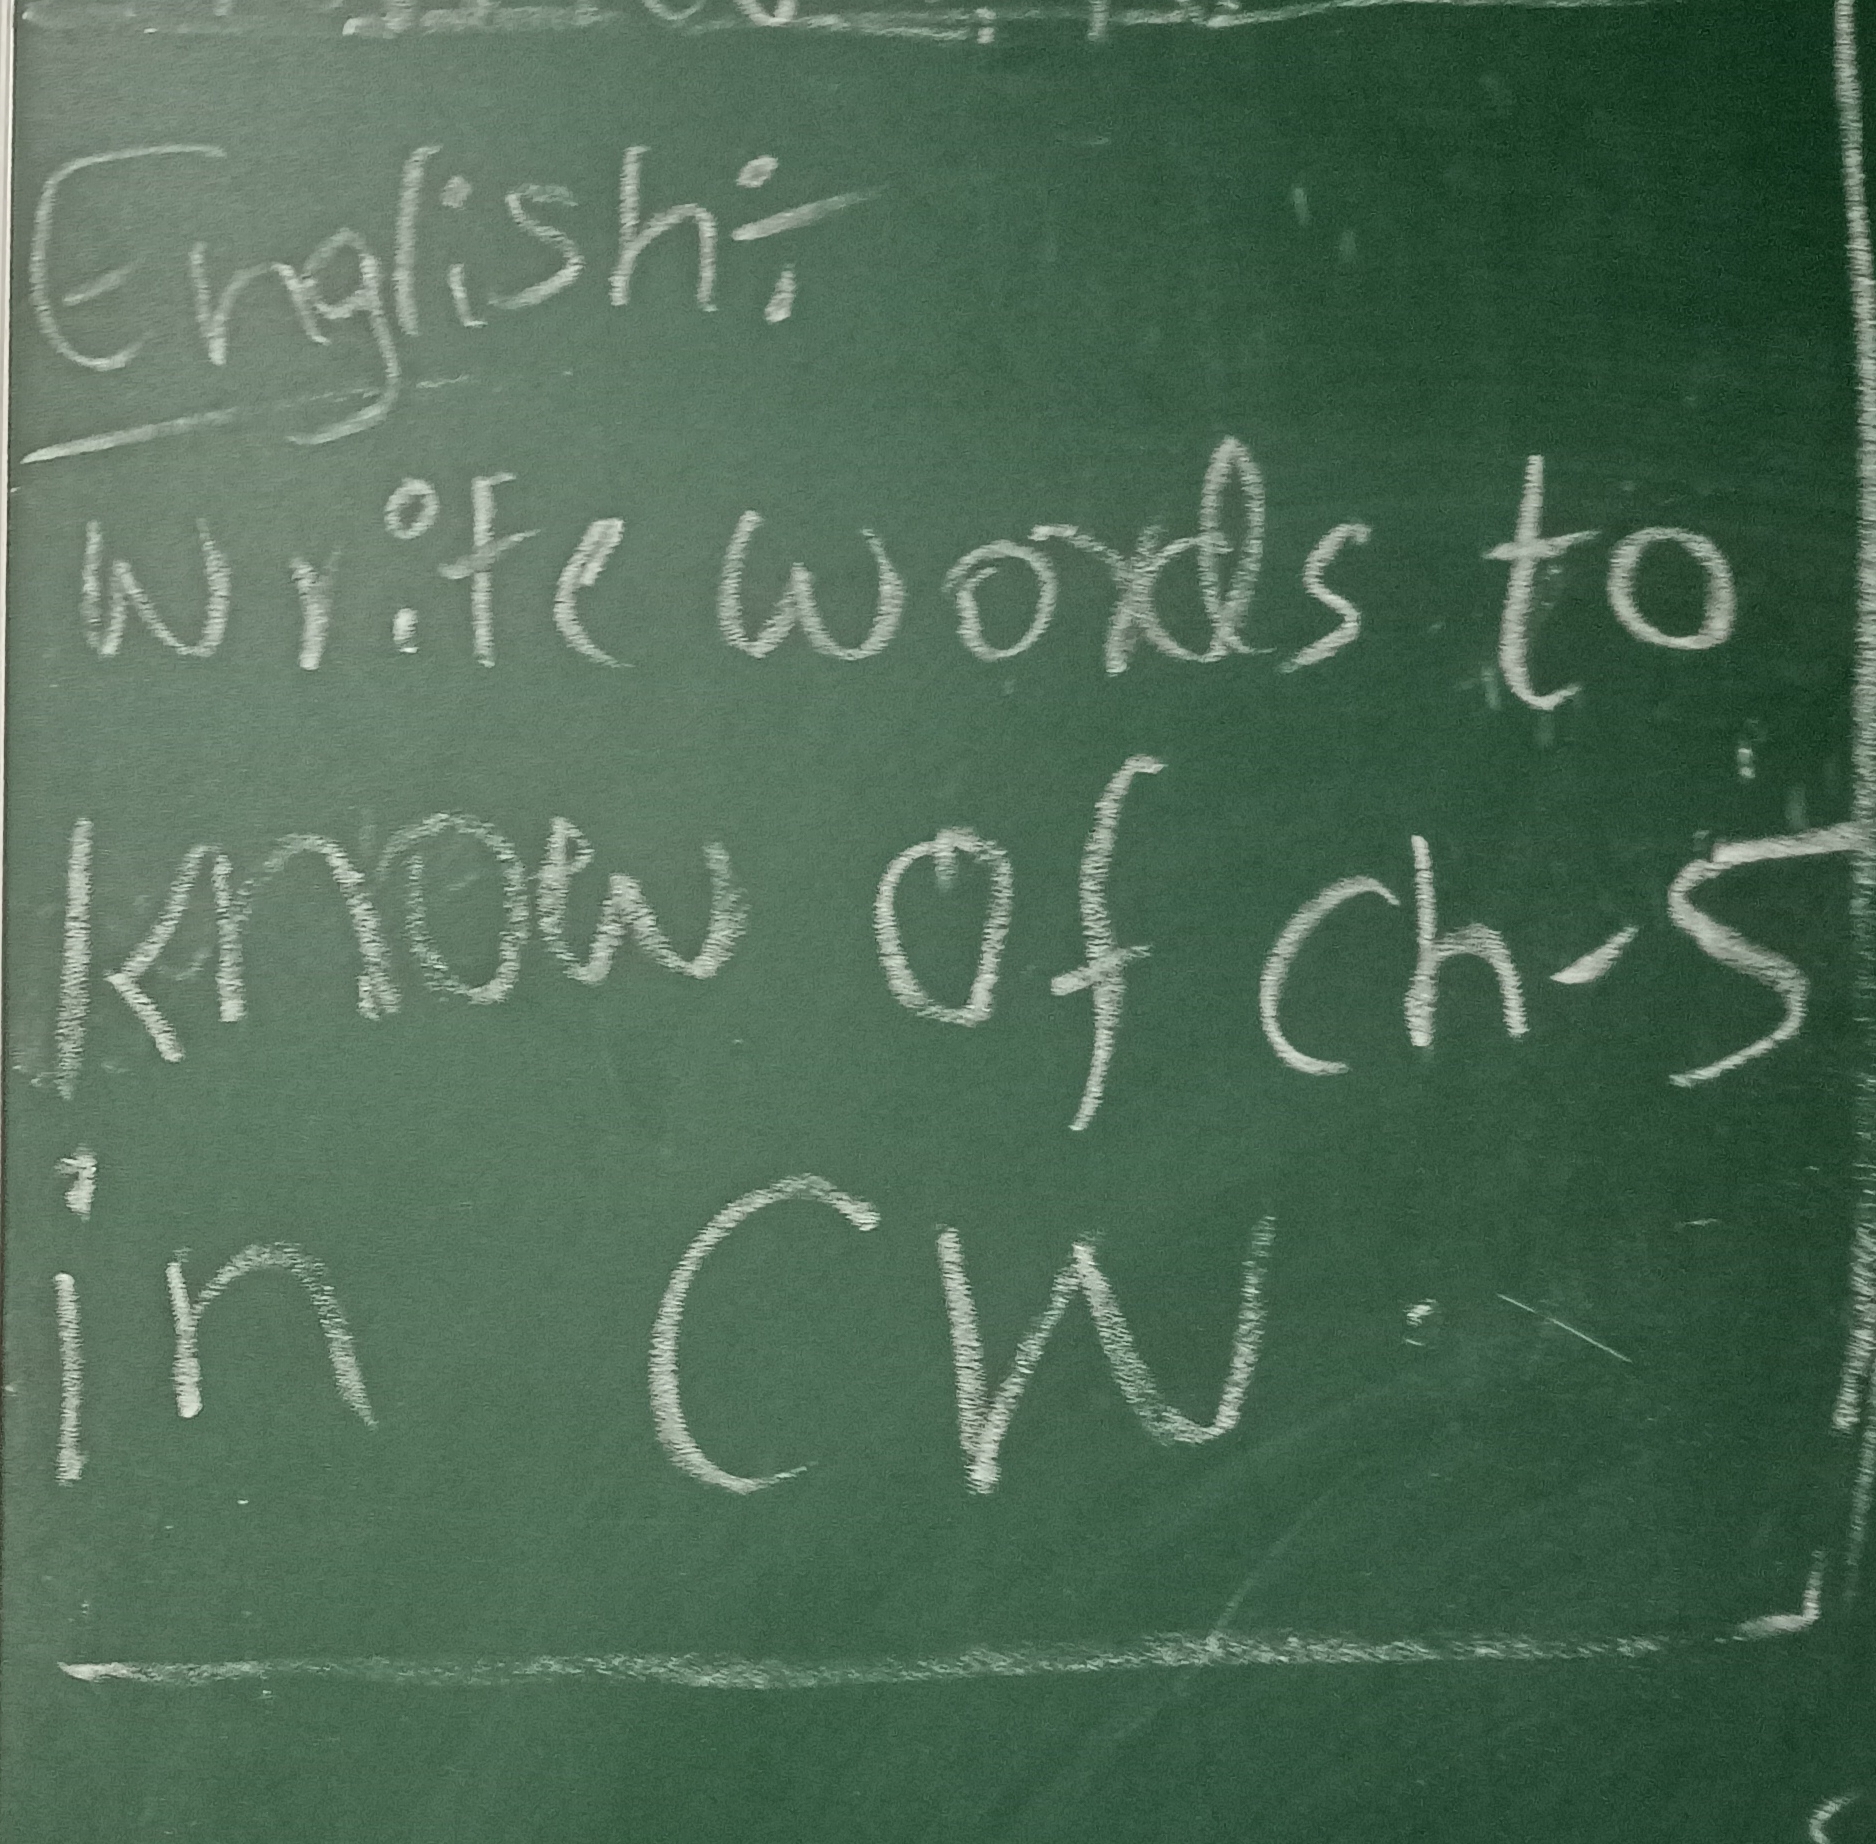 English:-
Write words to
know of ch-5
in CW.